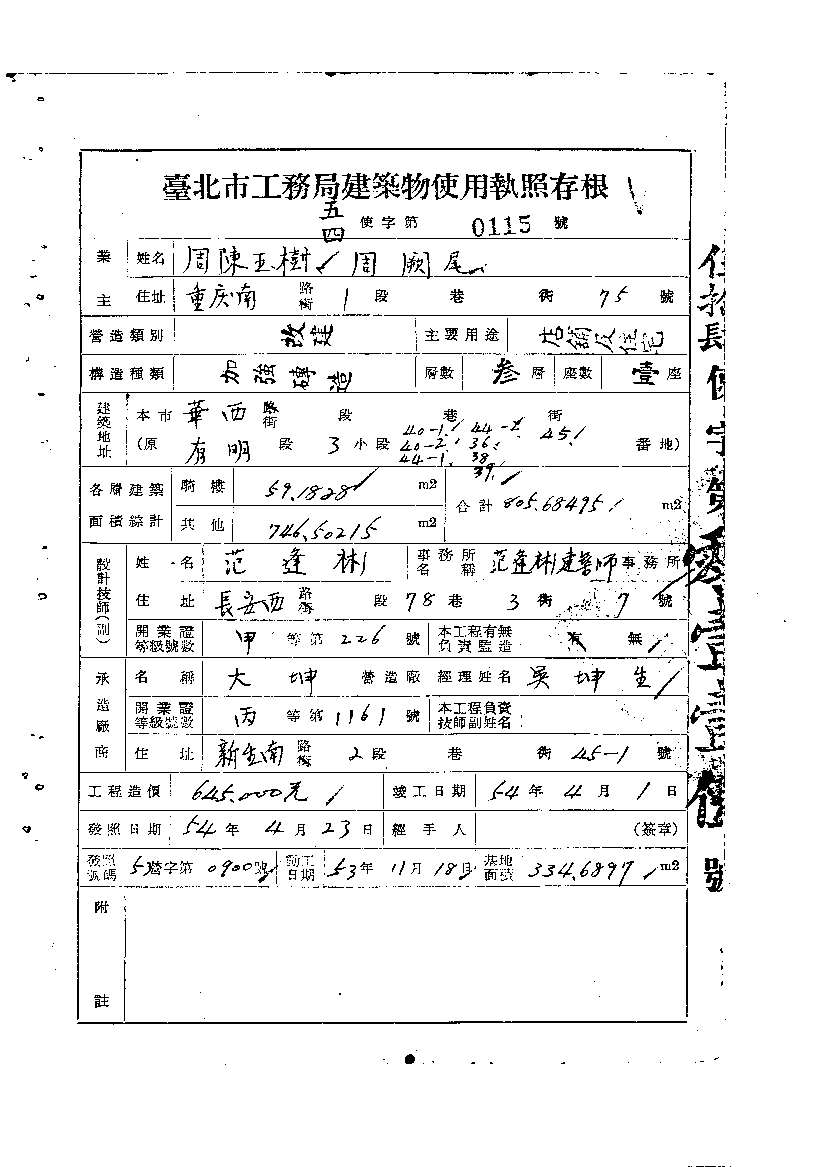 臺北市工務局建築物使用執照存根
五四 使字第 0115 號
業主 姓名 周陳玉樹 周闕尾
住址 重庆南 路街 1 段 巷 街 75 號
營造類別 改建 主要用途 店舖及住宅
構造種類 加強磚造 層數 叁 層 座數 壹 座
建築地址 本市 華西 路街 段 巷 街
(原 有明 段 3 小段 40-1 40-2 44-1 44-2 36 38 39 45 番地)
各層建築面積綜計 騎樓 59.1828 m2 合計 805.68495 m2
其他 746.50215 m2
設計技師(副) 姓名 范逢彬 事務所名稱 范逢彬建築師 事務所
住址 長安西 路街 段 78 巷 3 街 7 號
開業證等級號數 甲 等第 226 號 本工程有無負責監造 有 無
承造廠商 名稱 大坤 營造廠 經理姓名 吳坤生
開業證等級號數 丙 等第 1161 號 本工程負責技師副姓名
住址 新生南 路街 2 段 巷 街 45-1 號
工程造價 645.000元 竣工日期 54 年 4 月 1 日
發照日期 54 年 4 月 23 日 經手人 (簽章)
發照號碼 53營字第 0900 號 動工日期 53 年 11 月 18 日 基地面積 334.6897 m2
附註
伍拾肆使字第零壹壹伍號